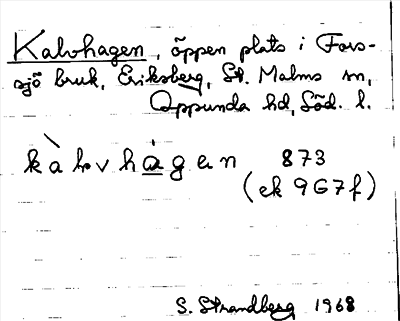 Kalvhagen, öppen plats i Fors-
sjö bruk, Eriksberg, St. Malms sn,
Oppunda hd, Söd. l.
kàlvhágen 873
(ek 9G7f)
S. Strandberg 1968